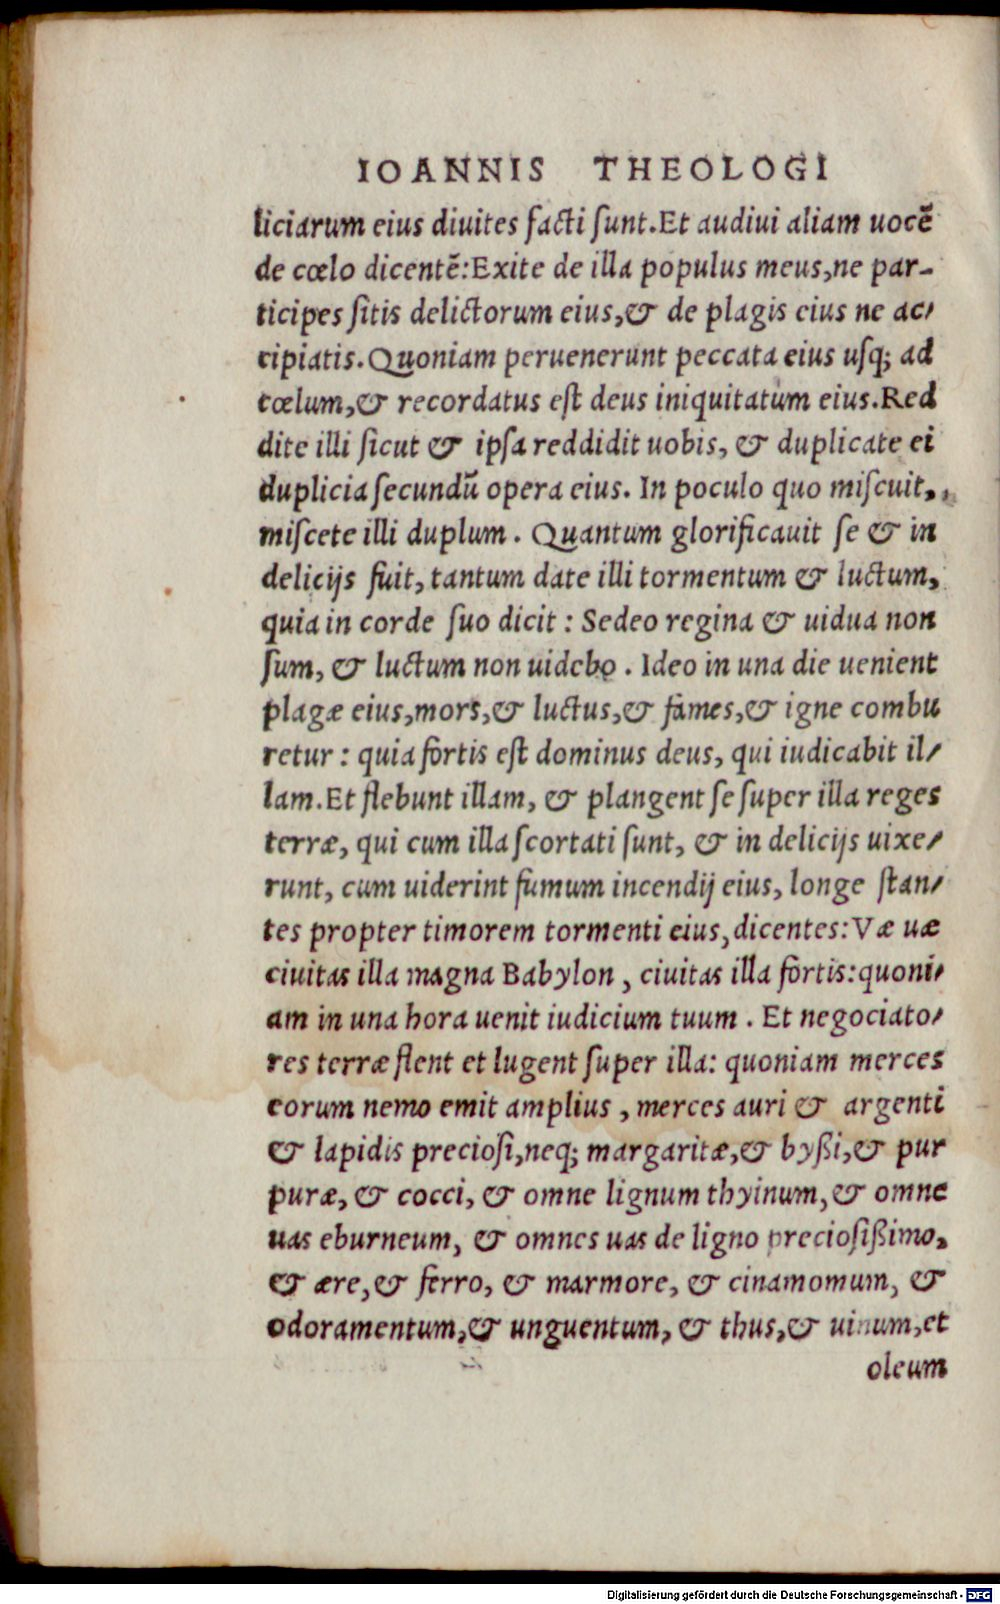 IOANNIS THEOLOGI
liciarum eius diuites facti ſunt.Et audiui aliam uocē
de cœlo dicentē:Exite de illa populus meus,ne par-
ticipes ſitis delictorum eius,& de plagis eius ne ac/
cipiatis.Quoniam peruenerunt peccata eius uſq; ad
cœlum,& recordatus eſt deus iniquitatum eius.Red
dite illi ſicut & ipſa reddidit uobis, & duplicate ei
duplicia ſecundũ opera eius. In poculo quo miſcuit,
miſcete illi duplum. Quantum glorificauit ſe & in
delicijs fuit, tantum date illi tormentum & luctum,
quia in corde ſuo dicit : Sedeo regina & uidua non
ſum, & luctum non uidebo . Ideo in una die uenient
plagæ eius,mors,& luctus,& fames,& igne combu
retur : quia fortis eſt dominus deus, qui iudicabit il/
lam.Et flebunt illam, & plangent ſe ſuper illa reges
terræ, qui cum illa ſcortati ſunt, & in delicijs uixe/
runt, cum uiderint fumum incendij eius, longe ſtan/
tes propter timorem tormenti eius,dicentes:Væ uæ
ciuitas illa magna Babylon , ciuitas illa fortis:quoni/
am in una hora uenit iudicium tuum . Et negociato/
res terræ flent et lugent ſuper illa: quoniam merces
eorum nemo emit amplius , merces auri & argenti
& lapidis precioſi,neq; margaritæ,& byßi,& pur
puræ, & cocci, & omne lignum thyinum,& omne
uas eburneum, & omnes uas de ligno precioſißimo,
& ære,& ferro, & marmore, & cinamomum, &
odoramentum,& unguentum, & thus,& uinum,et
oleum
Digitalisierung gefördert durch die Deutsche Forschungsgemeinschaft - DFG